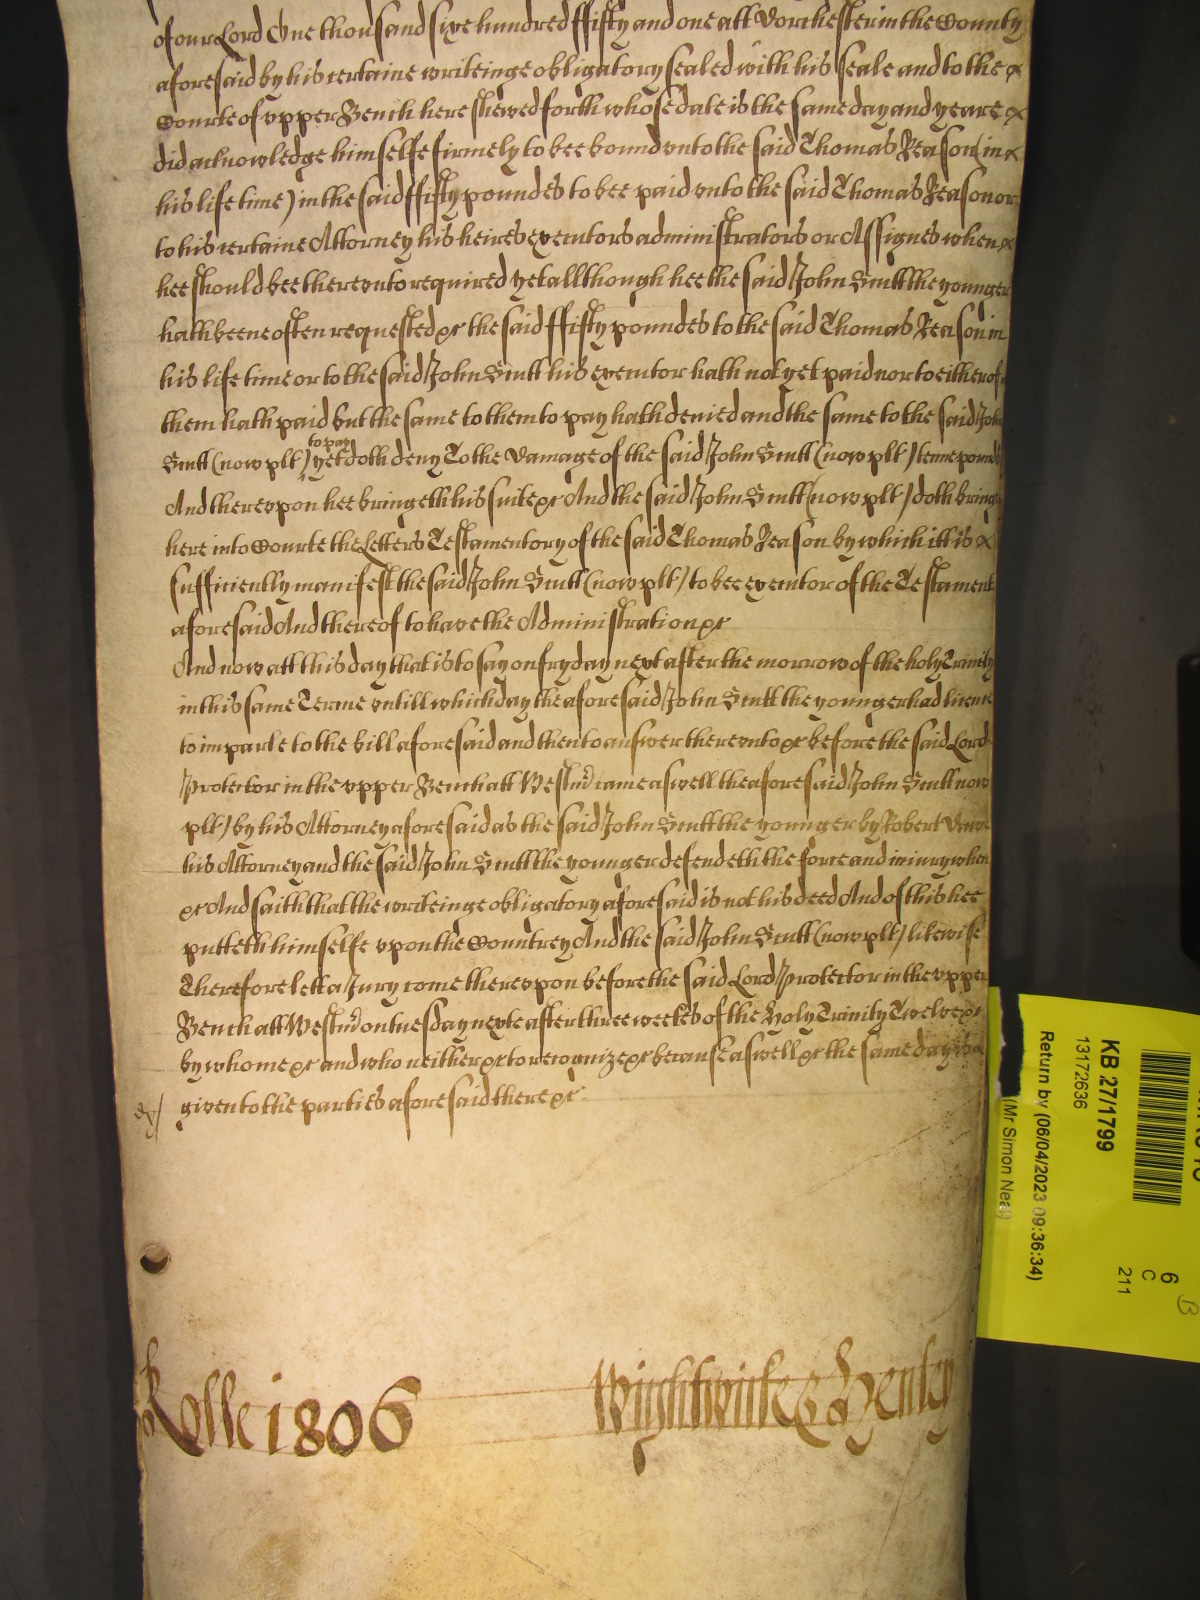 of our Lord One thousand sixe hundred ffifty and one att Dorchester in the County
aforesaid by his certaine writeinge obligatory sealed with his seale and to the
Courte of upper Bench here shewed forth whose date is the same day and yeare
did acknowledge himselfe firmely to bee bound unto the said Thomas Reason (in
his life time) in the said ffifty poundes to bee paid unto the said Thomas Reason or
to his certaine Attorney his heires executors administrators or Assignes when
hee should bee thereunto required yet allthough hee the said John Smtt the younger
hath beene often requested &c the said ffifty poundes to the said Thomas Reason in
his life time or to the said John Smtt his executor hath not yet paid nor to either of
them hath paid but the same to them to pay hath denied and the same to the said John
to pay
Smtt (now plt) yet doth deny To the damage of the said John Smtt (now plt) tenne pounds
And thereupon hee bringeth his suite &c And the said John Smtt (now plt) doth bringe
here into Courte the Letters Testamentory of the said Thomas Reason by which itt is
sufficiently manifest the said John Smtt (now plt) to bee executor of the Testament
aforesaid And thereof to have the Administration &c
And now att this day that is to say on fryday next after the morrow of the holy Trinity
in this same Terme untill which day the aforesaid John Smtt the younger had licence
to imparle to the bill aforesaid and then to answer thereunto &c before the said Lord
Protector in the upper Bench att Westm̄ came aswell the aforesaid John Smtt now
plt) by his Attorney aforesaid as the said John Smtt the younger by Robert
his Attorney and the said John Smtt the younger defendeth the force and iniury when
&c And saith that the writeinge obligatory aforesaid is not his deed And of this hee
putteth himselfe upon the Countrey And the said John Smtt (now plt) likewise
Therefore lett a Jury come thereupon before the said Lord Protector in the upper
Bench att Westm̄ on tuesday nexte after three weekes of the Holy Trinity Twelve &c
by whome &c and who neither &c to recognize &c because aswell &c the same day is
given to the parties aforesaid there &c
Rolle 1806
Wightwicke & Henley
KB 27/1799
13172636
Return by (06/04/2023 09:36:34)
(Mr Simon Neal)
6
C
211
B